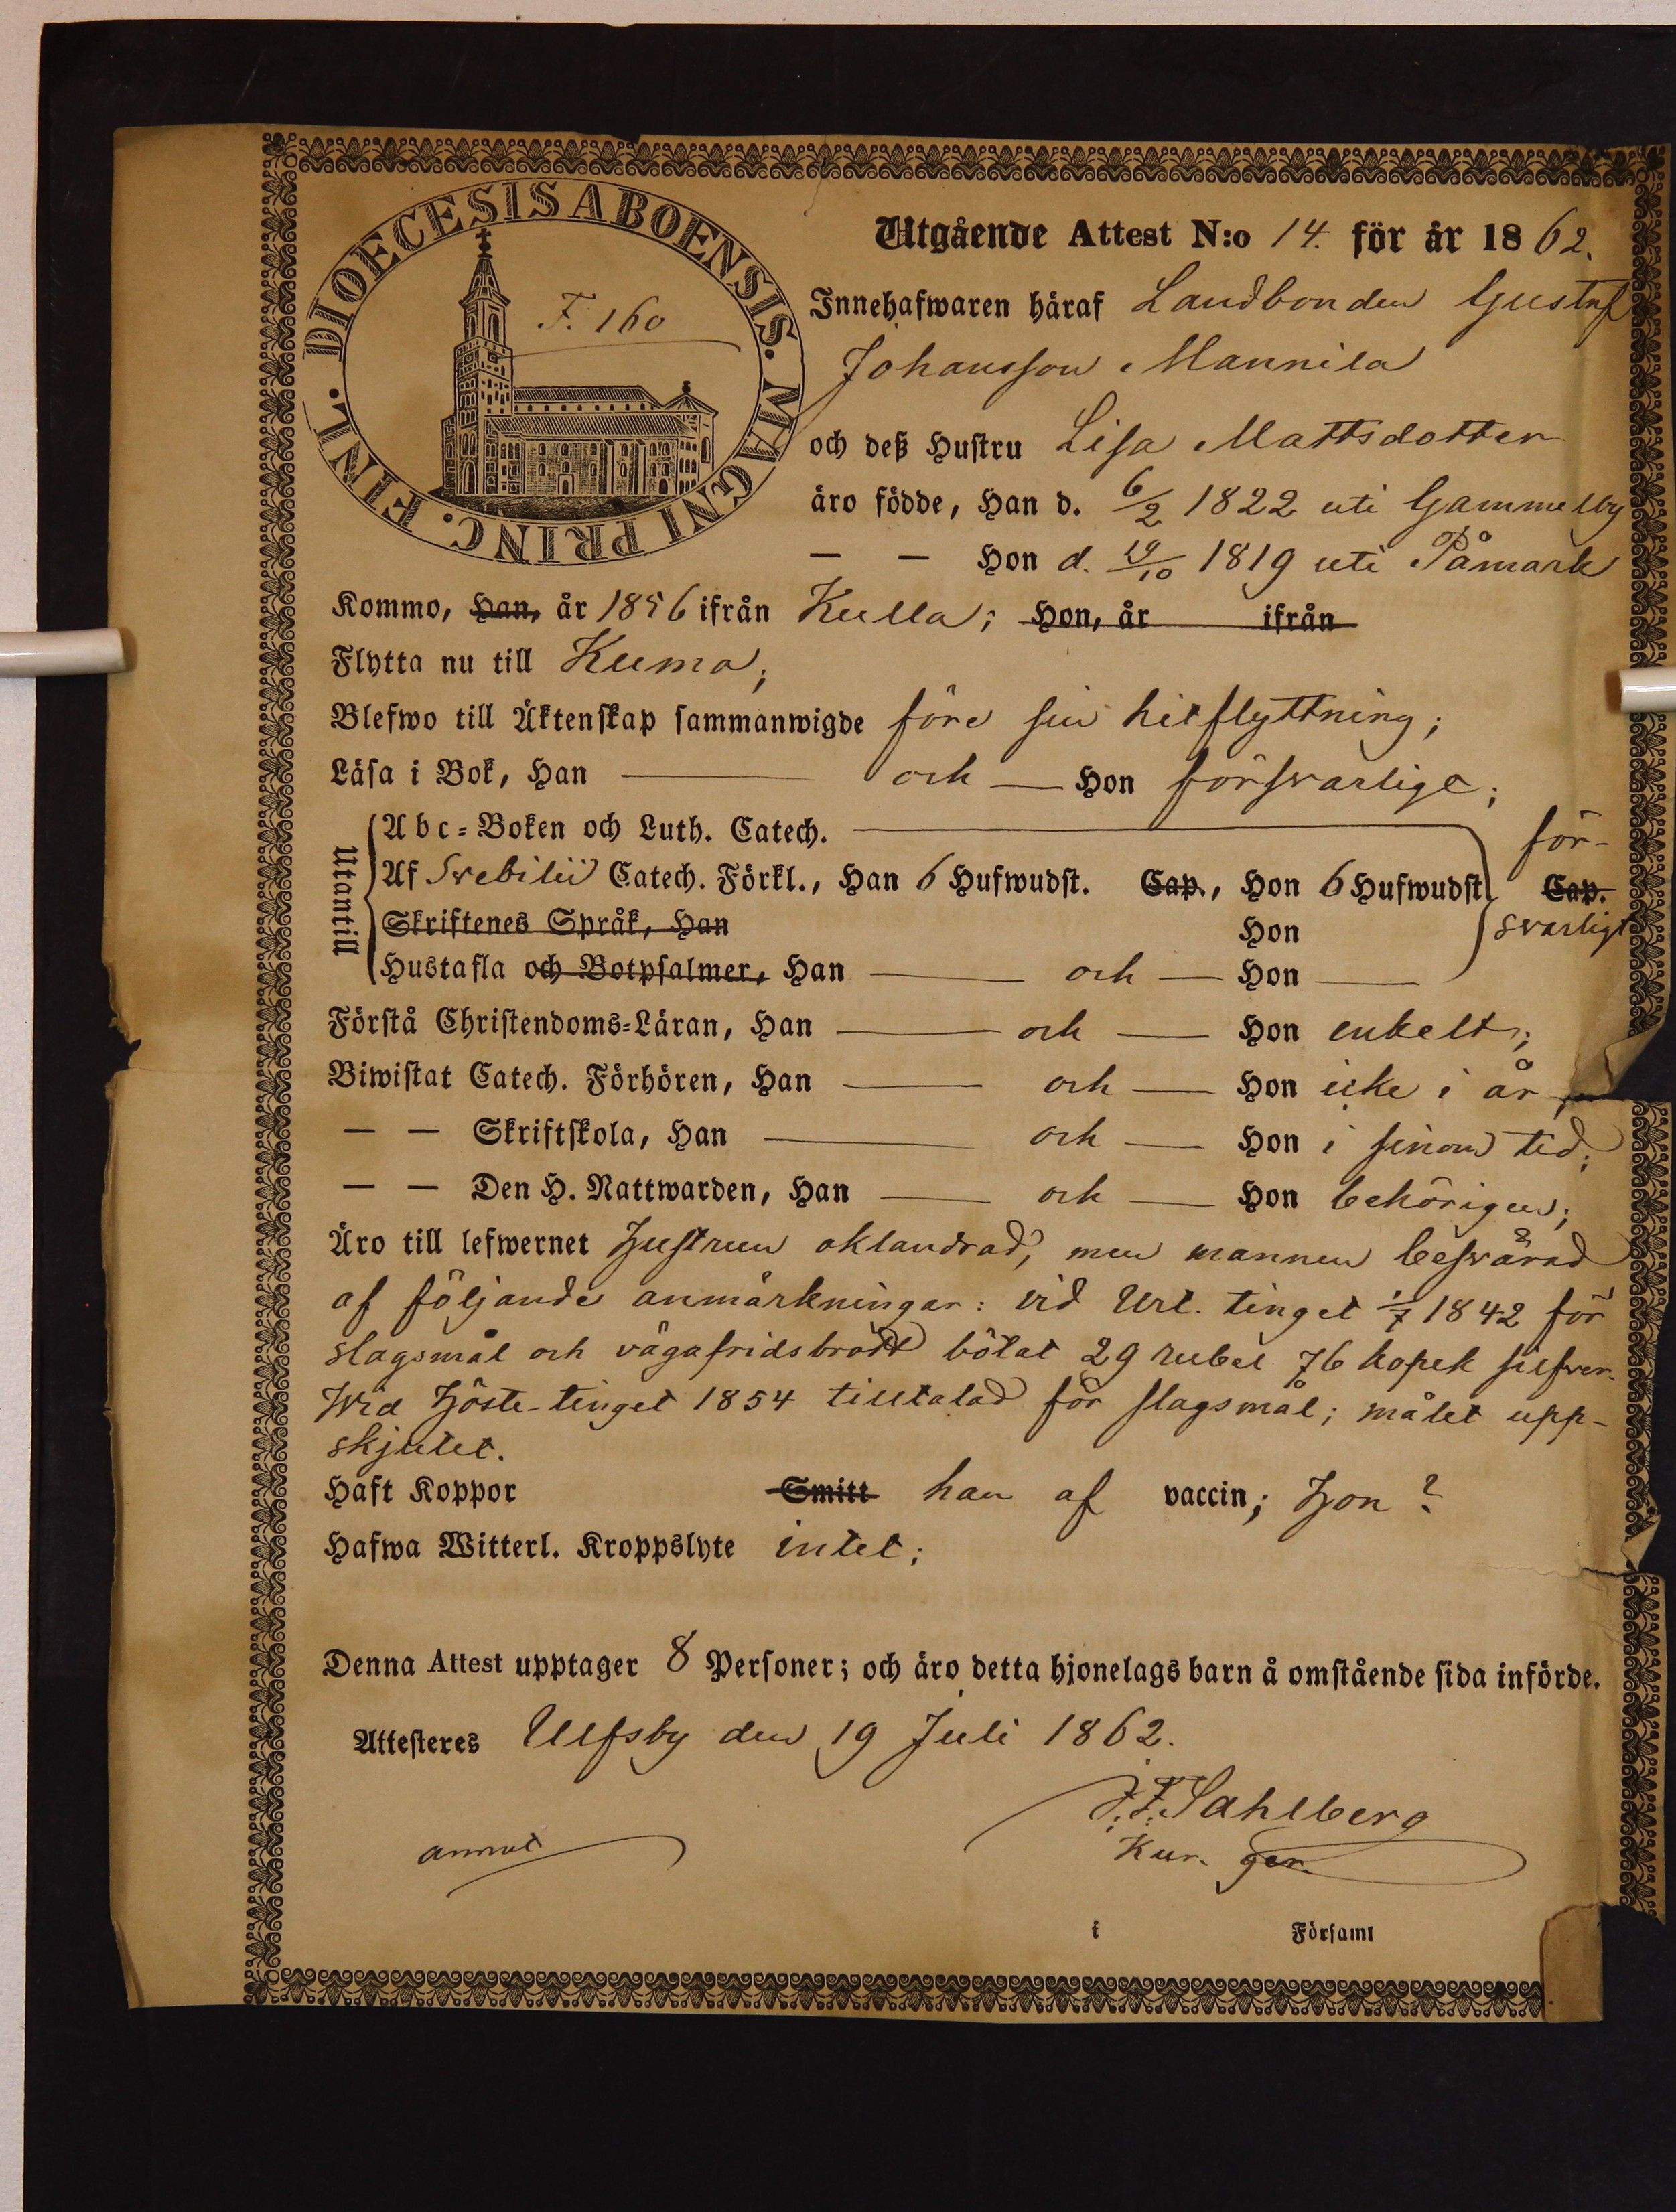 DIOECESIS ABOENSIS. MAGNI PRINC. FINL.
F. 160
Utgående Attest N:o 14. för år 1862.
Innehafwaren häraf Landbonden Gustaf
Johansson Mannila
och deß Hustru Lisa Mattsdotter
äro födde, Han d. 6/2 1822 uti Gammelby
— — Hon d. 19/10 1819 uti Påmark
Kommo, Han, år 1856 ifrån Kulla; Hon, år ifrån
Flytta nu till Kumo;
Blefwo till Äktenskap sammanwigde före sin hitflyttning;
Läsa i Bok, Han — och — Hon försvarligt;
Utantill
Abc-Boken och Luth. Catech. — för-
Af Svebilii Catech. Förkl., Han 6 Hufwudst. Cap., Hon 6 Hufwudst. Cap.
Skriftenes Språk, Han Hon svarligt
Hustafla och Botpsalmer, Han — och — Hon —
Förstå Christendoms-Läran, Han — och — Hon enkelt;
Biwistat Catech. Förhören, Han — och — Hon icke i år;
— — Skriftskola, Han — och — Hon i sinom tid;
— — Den H. Nattwarden, Han — och — Hon behörigen;
Äro till lefwernet Hustrun oklandrad, men mannen besvärad
af följande anmärkningar: vid Url. tinget 1/7 1842 för
slagsmål och vägafridsbrott bötat 29 rubel 76 kopek silfver.
Wid Höste-tinget 1854 tilltalad för slagsmål; målet upp-
skjutet.
Haft Koppor Smitt han af vaccin; Hon ?
Hafwa Witterl. Kroppslyte intet;
Denna Attest upptager 8 Personer; och äro detta hjonelags barn å omstående sida införde.
Attesteres Ulfsby den 19 Juli 1862.
J. F. Sahlberg
annot Kur. ger.
i Församl